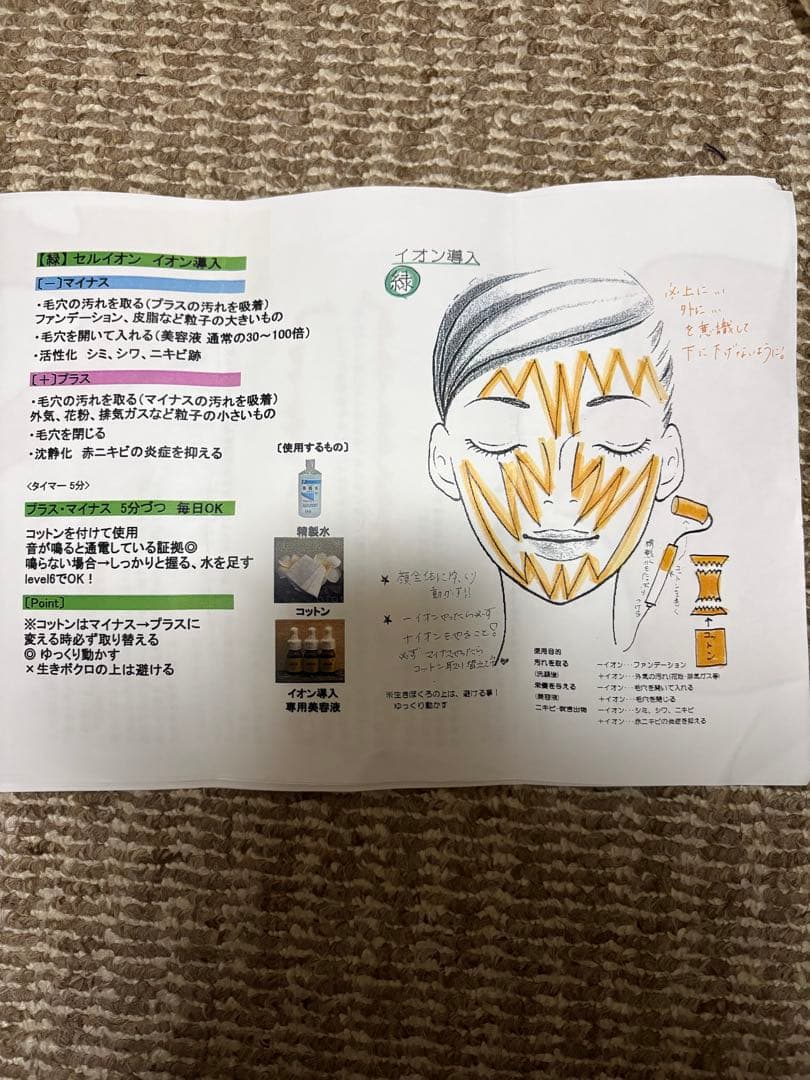 【緑】セルイオン イオン導入
[－]マイナス
・毛穴の汚れを取る(プラスの汚れを吸着)
ファンデーション、皮脂など粒子の大きいもの
・毛穴を開いて入れる(美容液 通常の30～100倍)
・活性化 シミ、シワ、ニキビ跡
[＋]プラス
・毛穴の汚れを取る(マイナスの汚れを吸着)
外気、花粉、排気ガスなど粒子の小さいもの
・毛穴を閉じる
・沈静化 赤ニキビの炎症を抑える
<タイマー 5分>
プラス・マイナス 5分づつ 毎日OK
コットンを付けて使用
音が鳴ると通電している証拠◎
鳴らない場合→しっかりと握る、水を足す
level6でOK！
[Point]
※コットンはマイナス→プラスに
変える時必ず取り替える
◎ ゆっくり動かす
× 生きボクロの上は避ける
[使用するもの]
精製水
コットン
イオン導入
専用美容液
イオン導入
緑
※上に…
外に…
を意識して
下に下げないように。
コットンを巻く
コットン
★ 顔全体にゆっくり
動かす!!
★ ーイオンやったら必ず
＋イオンもやること!
必ずマイナスやったら
コットン取り替える
※生きぼくろの上は、避ける事！
ゆっくり動かす
使用目的
汚れを取る
(洗顔後)
栄養を与える
(美容液)
ニキビ・
ーイオン・・・ファンデーション
＋イオン・・・外気の汚れ(花粉・排気ガス等)
ーイオン・・・毛穴を開いて入れる
＋イオン・・・毛穴を閉じる
ーイオン・・・シミ、シワ、ニキビ
＋イオン・・・赤ニキビの炎症を抑える